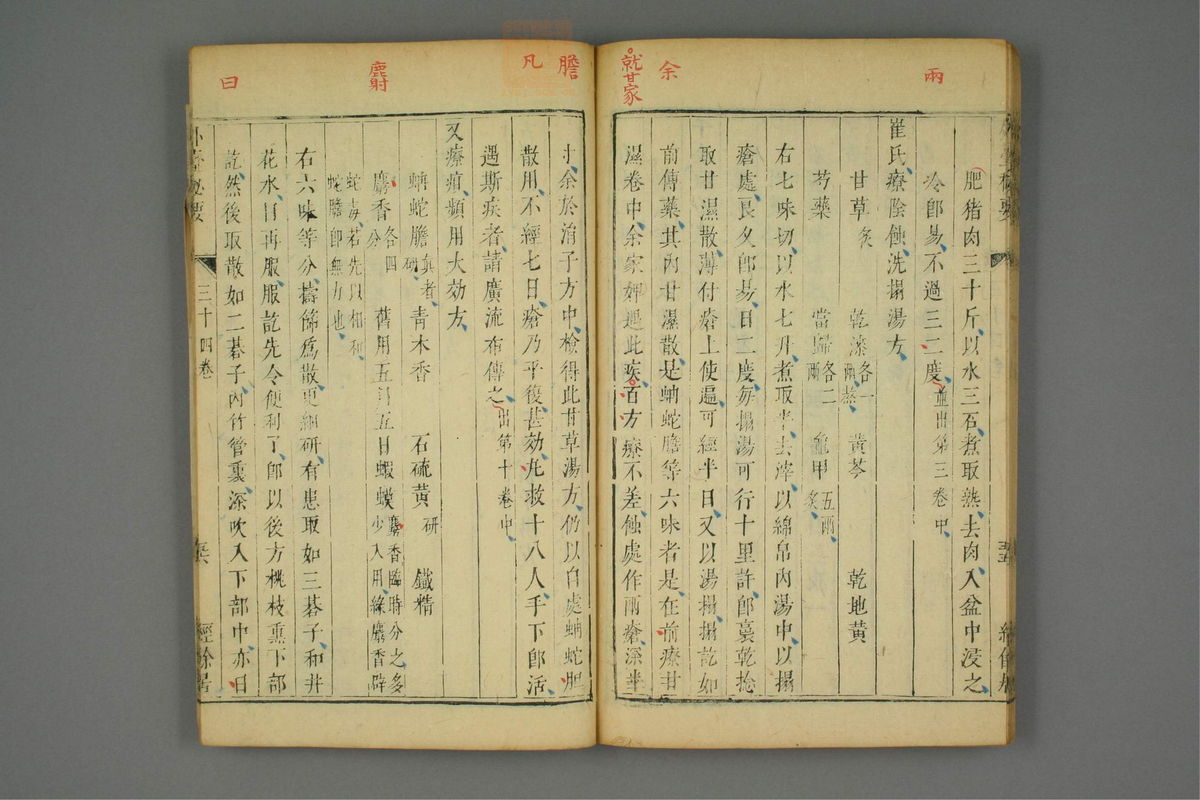 兩
余
就甘家
肥豬肉三十斤以水三石煮取熟去肉入盆中浸之
冷卽易不過三二度並出第三卷中
崔氏療陰蝕洗搨湯方
甘草炙 乾漆各一兩熬 黃芩 乾地黃
芍藥 當歸各二兩 龜甲五兩炙
右七味切以水七升煮取半去滓以綿帛內湯中以搨
瘡處良久卽易日二度每搨湯可行十里許卽裛乾捻
取甘濕散薄付瘡上使遍可經半日又以湯搨搨訖如
前傳藥其內甘濕散是蚺蛇膽等六味者是在前療甘
濕卷中余家婢遇此疾百方療不差蝕處作兩瘡深半
膽
凡
麝
曰
寸余於濟子方中檢得此甘草湯方仍以自處蚺蛇胆
散用不經七日瘡乃平復甚効九救十八人手下卽活
遇斯疾者請廣流布傳之出第十卷中
又療疳頻用大効方
蚺蛇膽真者研 青木香 石硫黃研 鐵精
麝香各四分 舊用五月五日蝦蟆麝香臨時分之多少入用緣麝香辟
蛇毒若先以相和蛇膽卽無力也
右六味等分擣篩爲散更細研有患取如三碁子和井
花水日再服服訖先令便利了卽以後方桃枝熏下部
訖然後取散如二碁子內竹管裏深吹入下部中亦日
外臺秘要
三十四卷
經餘居